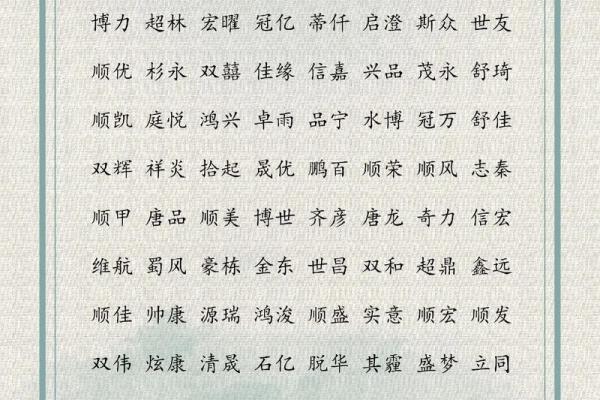 博力 超林 宏曜 冠亿 蒂仟 启澄 斯众 世友
顺优 杉永 双囍 佳缘 信嘉 兴品 茂永 舒琦
顺凯 庭悦 鸿兴 卓雨 品宁 水博 冠万 舒佳
双辉 祥炎 拾起 晟优 鹏百 顺荣 顺风 志秦
顺甲 唐品 顺美 博世 齐彦 唐龙 奇力 信宏
维航 蜀风 豪栋 金东 世昌 双和 超鼎 鑫远
顺佳 帅康 源瑞 鸿浚 顺盛 实意 顺宏 顺发
双伟 炫康 清晟 石亿 脱华 其霾 盛梦 立同